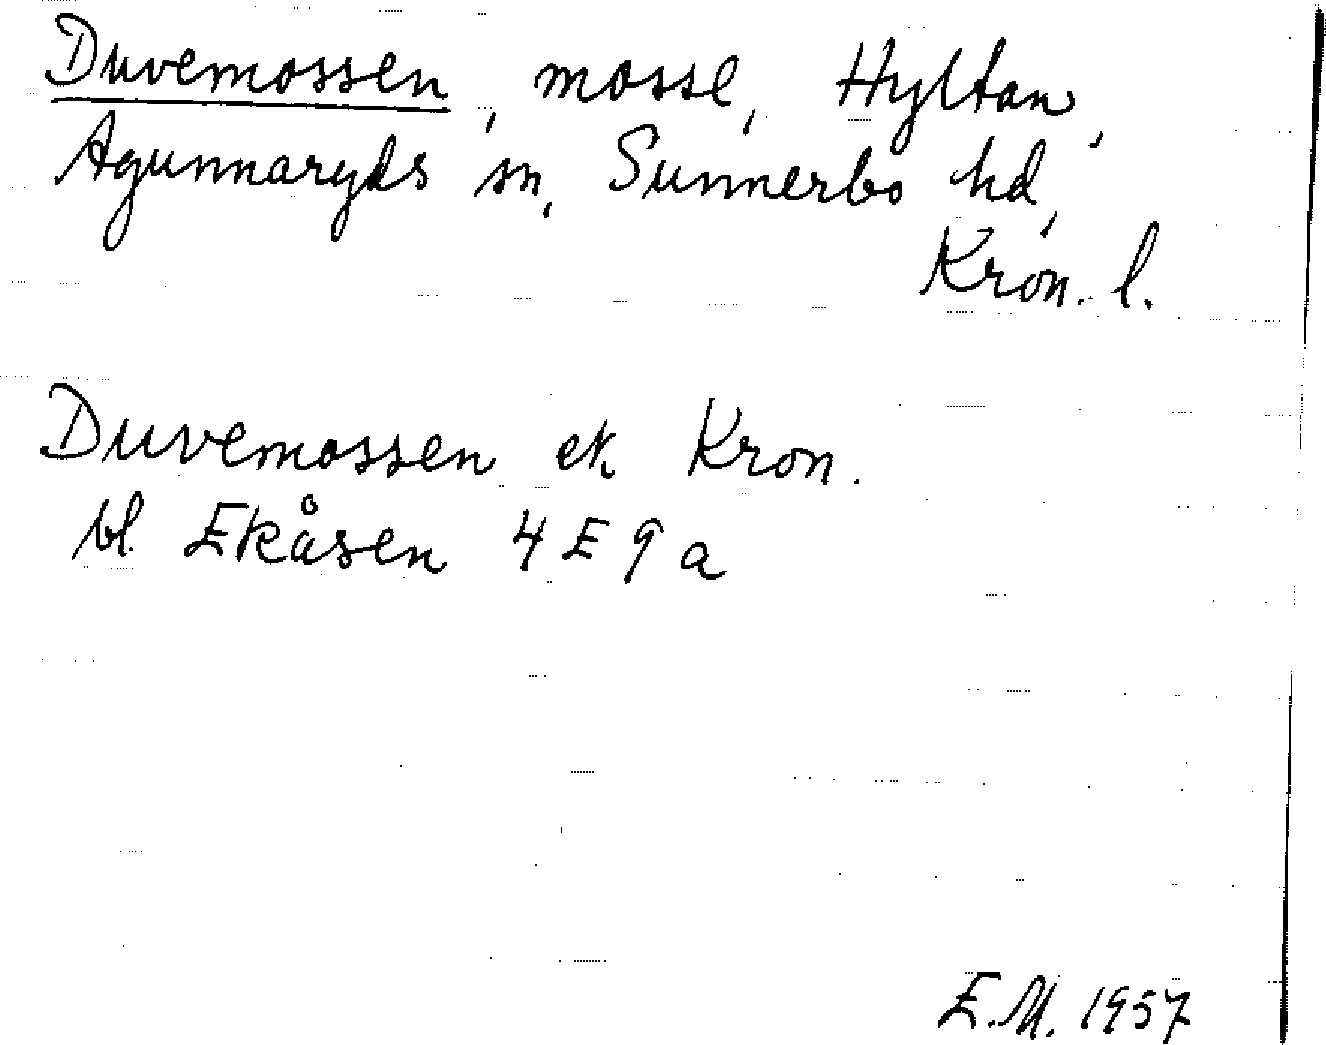 Duvemossen, mosse, Hyltan,
Agunnaryds sn, Sunnerbo hd,
Kron. l.
Duvemossen ek Kron.
bl. Ekåsen 4 E 9 a
E.M. 1957